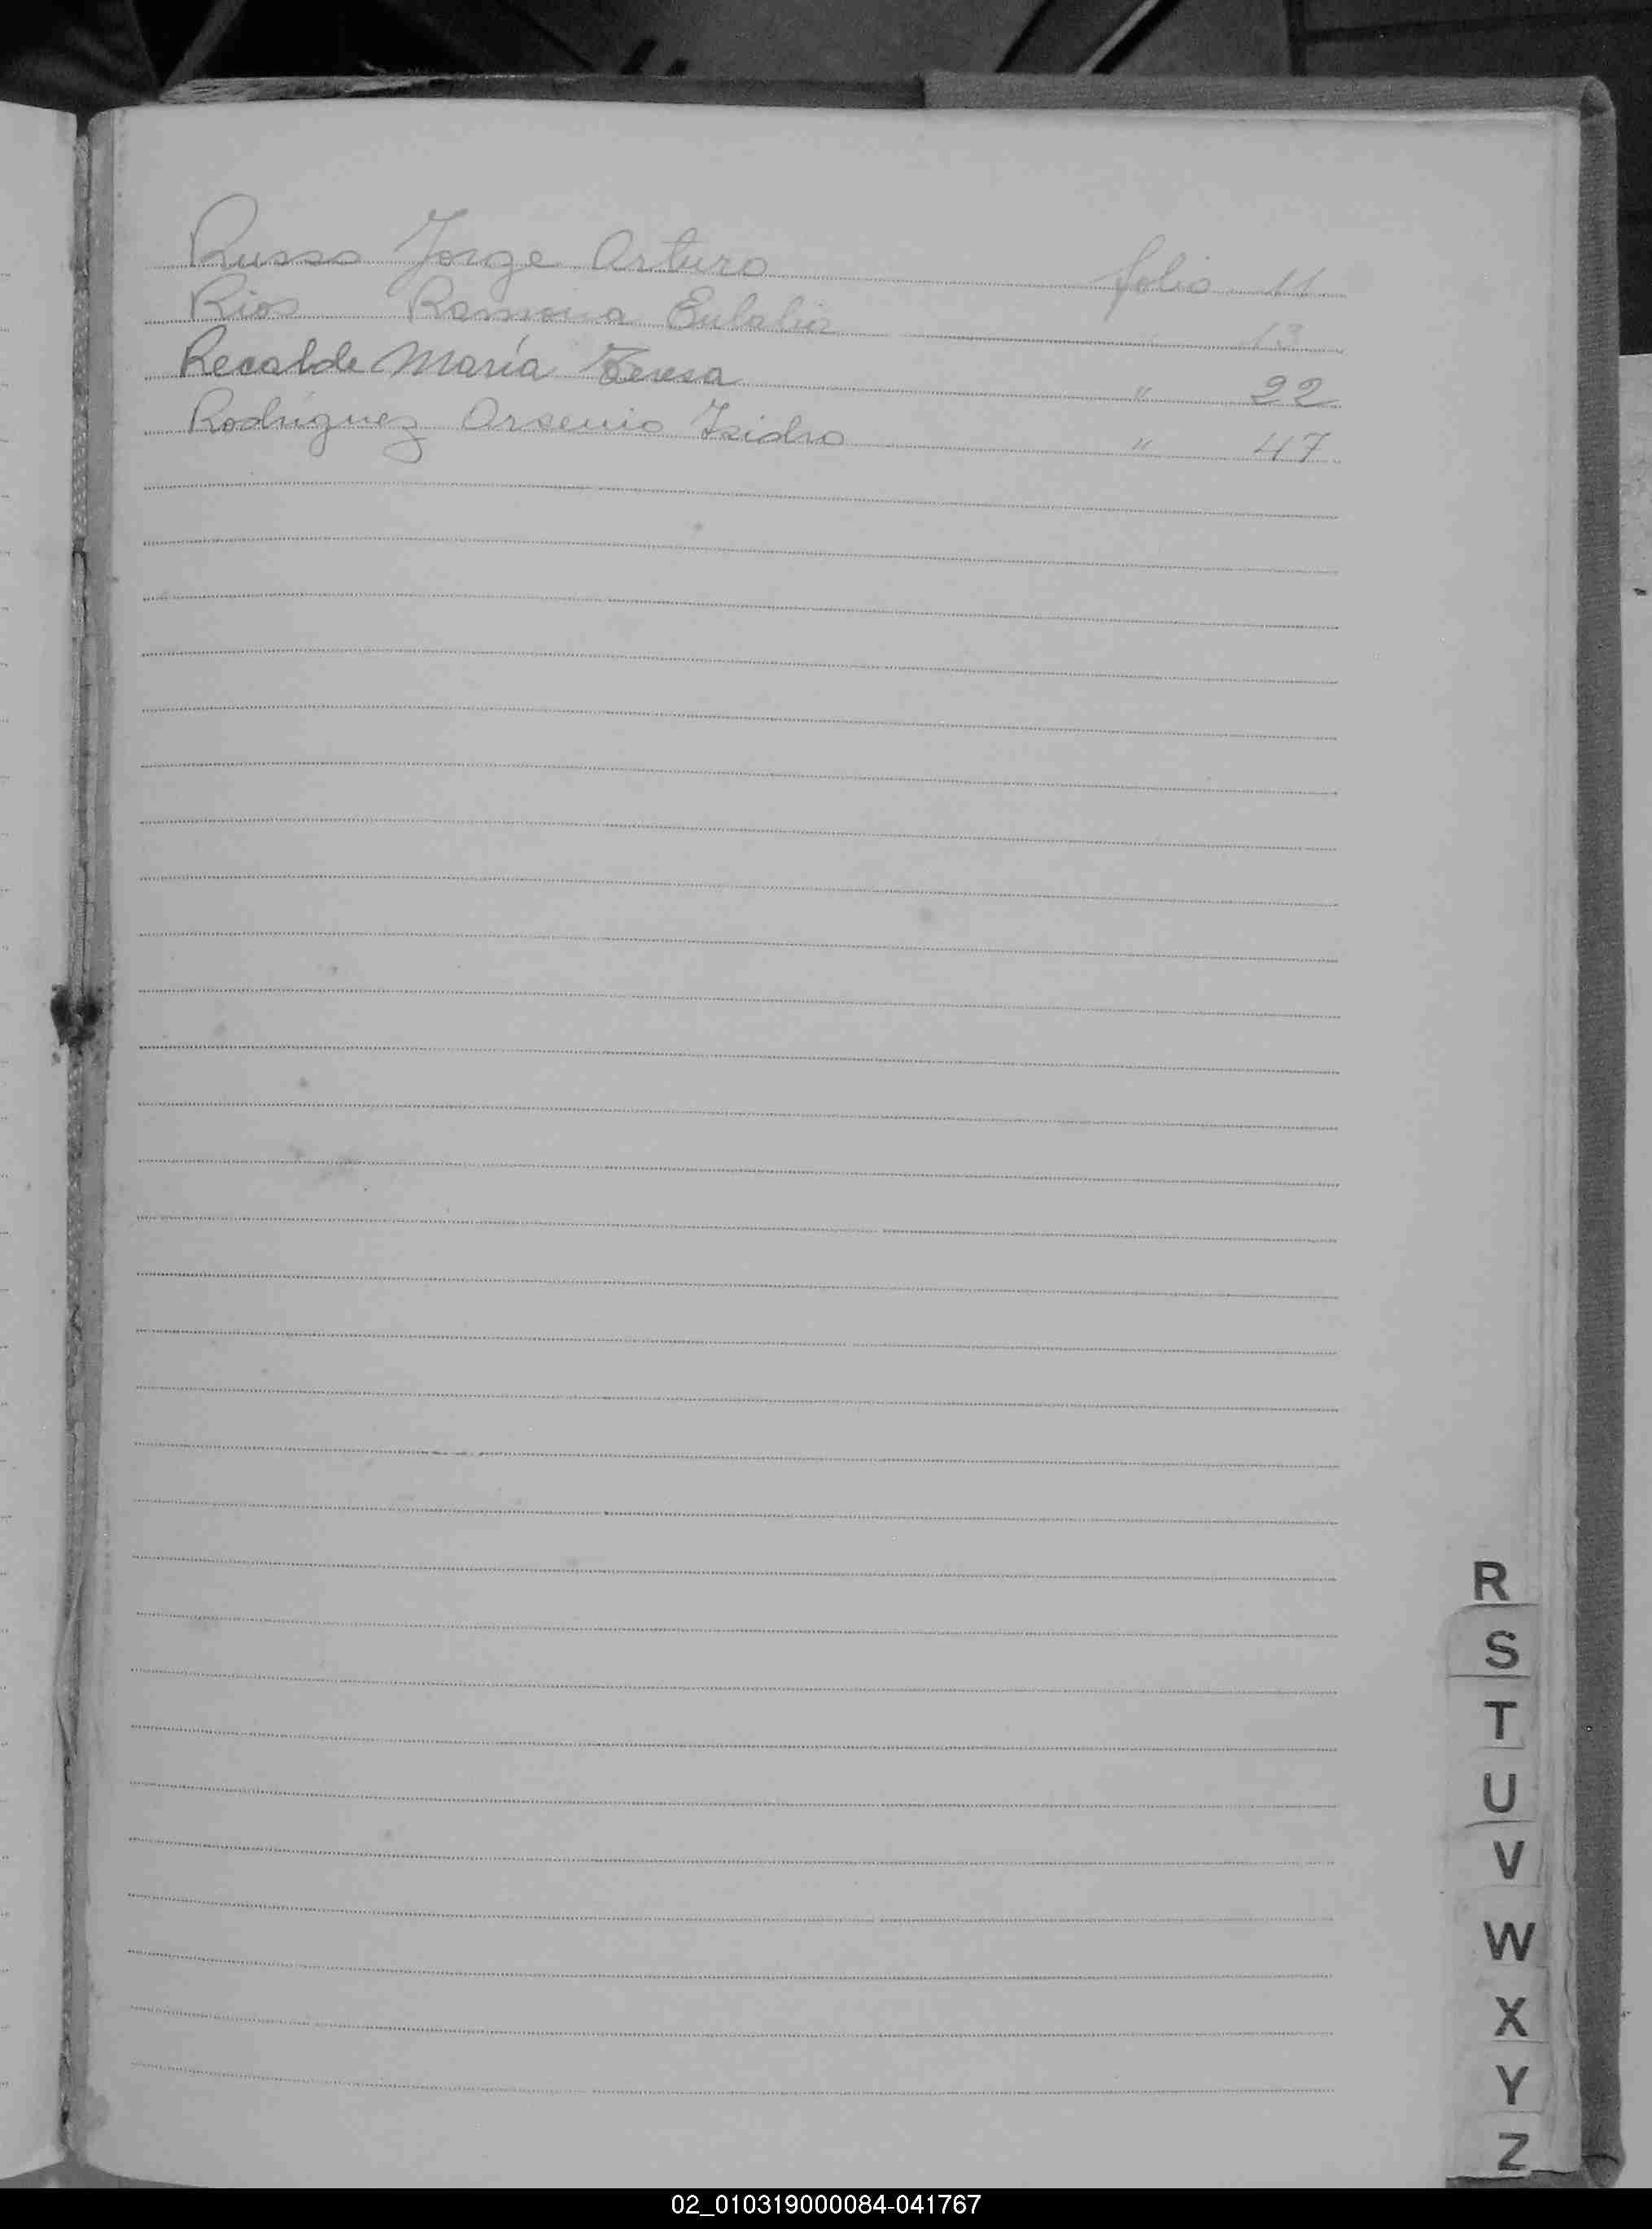 Russo Jorge Arturo folio 11
Rios Ramona Eulalia " 13
Recalde María Teresa " 22
Rodríguez Arsenio Isidro " 47
R
S
T
U
V
W
X
Y
Z
02_010319000084-041767